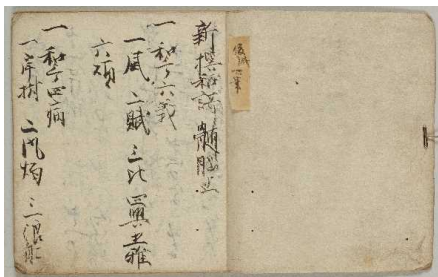 新撰和謌髄脳
一 和哥六義
一風 二賦 三比 四興 五雅
六頌
一 和哥四病
一岸樹 二風燭 三浪船